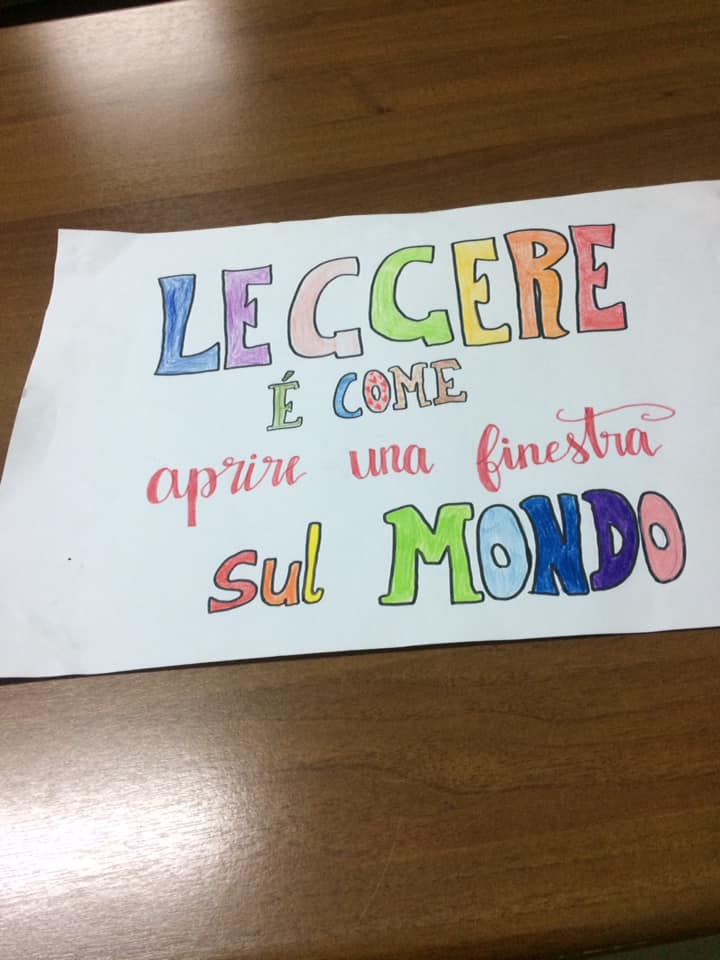 LEGGERE
É COME
aprire una finestra
sul MONDO